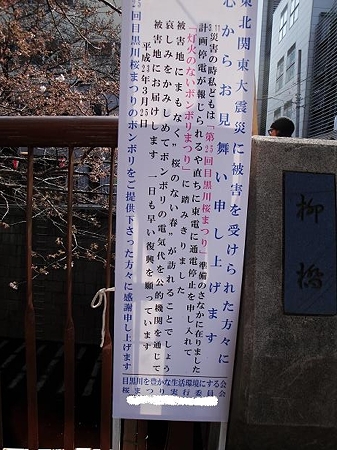 東北関東大震災に被害を受けられた方々に
心からお見舞い申し上げます
3/11災害の時私どもは、「第25回目黒川桜まつり」準備のさなかに在りました
計画停電が報じられるや直ちに東電に通電停止を申し入れて
「灯火のないボンボリまつり」に踏みきりました
被害地にまもなく“桜のない春”が訪れることでしょう
哀しみをかみしめてボンボリの電気代を公的機関を通じて
被害地にお届けします 一日も早い復興を願っています
平成23年3月25日
25回目黒川桜まつりのボンボリをご提供下さった方々に感謝申し上げます
目黒川を豊かな生活環境にする会
桜まつり実行委員会
柳橋